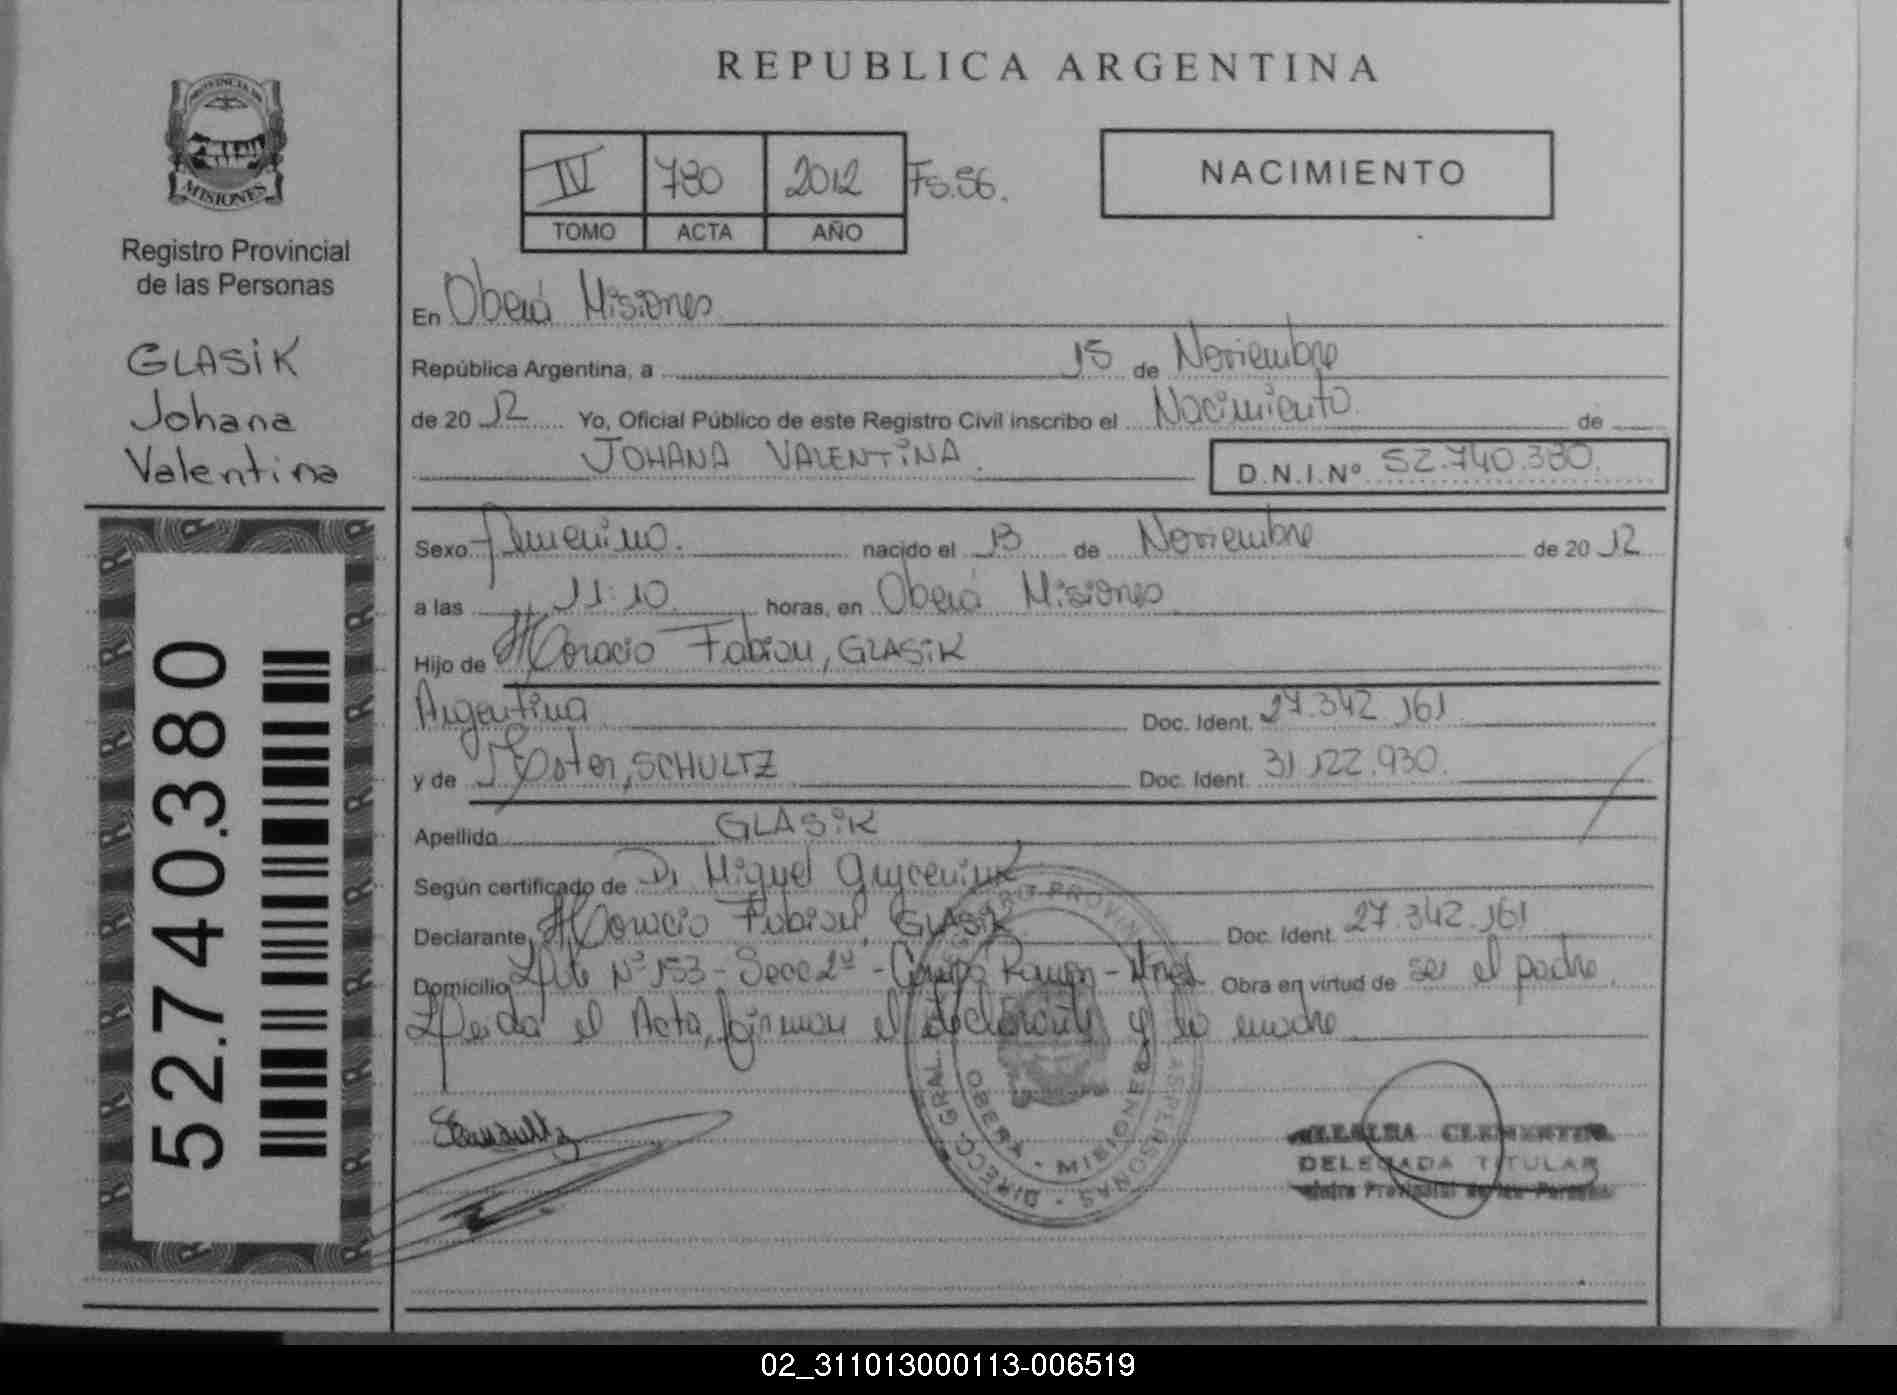 REPUBLICA ARGENTINA
PROVINCIA DE
MISIONES
Registro Provincial
de las Personas
GLASIK
Johana
Valentina
52.740.380
IV 780 2012 Fs.56.
TOMO ACTA AÑO
NACIMIENTO
En Oberá Misiones
República Argentina, a 15 de Noviembre
de 20 12 Yo, Oficial Público de este Registro Civil inscribo el Nacimiento. de
JOHANA VALENTINA. D.N.I.Nº 52.740.380.
Sexo femenino. nacido el 13 de Noviembre de 20 12
a las 11:10 horas, en Oberá Misiones
Hijo de Horacio Fabian, GLASIK
Argentina Doc. Ident. 27.342.161
y de Ester, SCHULTZ Doc. Ident. 31.122.930.
Apellido GLASIK
Según certificado de Dr Miguel
Declarante Horacio Fabian, GLASIK Doc. Ident. 27.342.161
Domicilio Lote Nº 153 - Secc 2ª - Campo Ramon - Mnes Obra en virtud de ser el padre.
Leida el Acta, firman el declarante y la madre
DIRECC. GRAL. REGISTRO PROVINCIAL DE LAS PERSONAS
OBERA - MISIONES
CLEMENTINA
DELEGADA TITULAR
Registro Provincial de las Personas
02_311013000113-006519